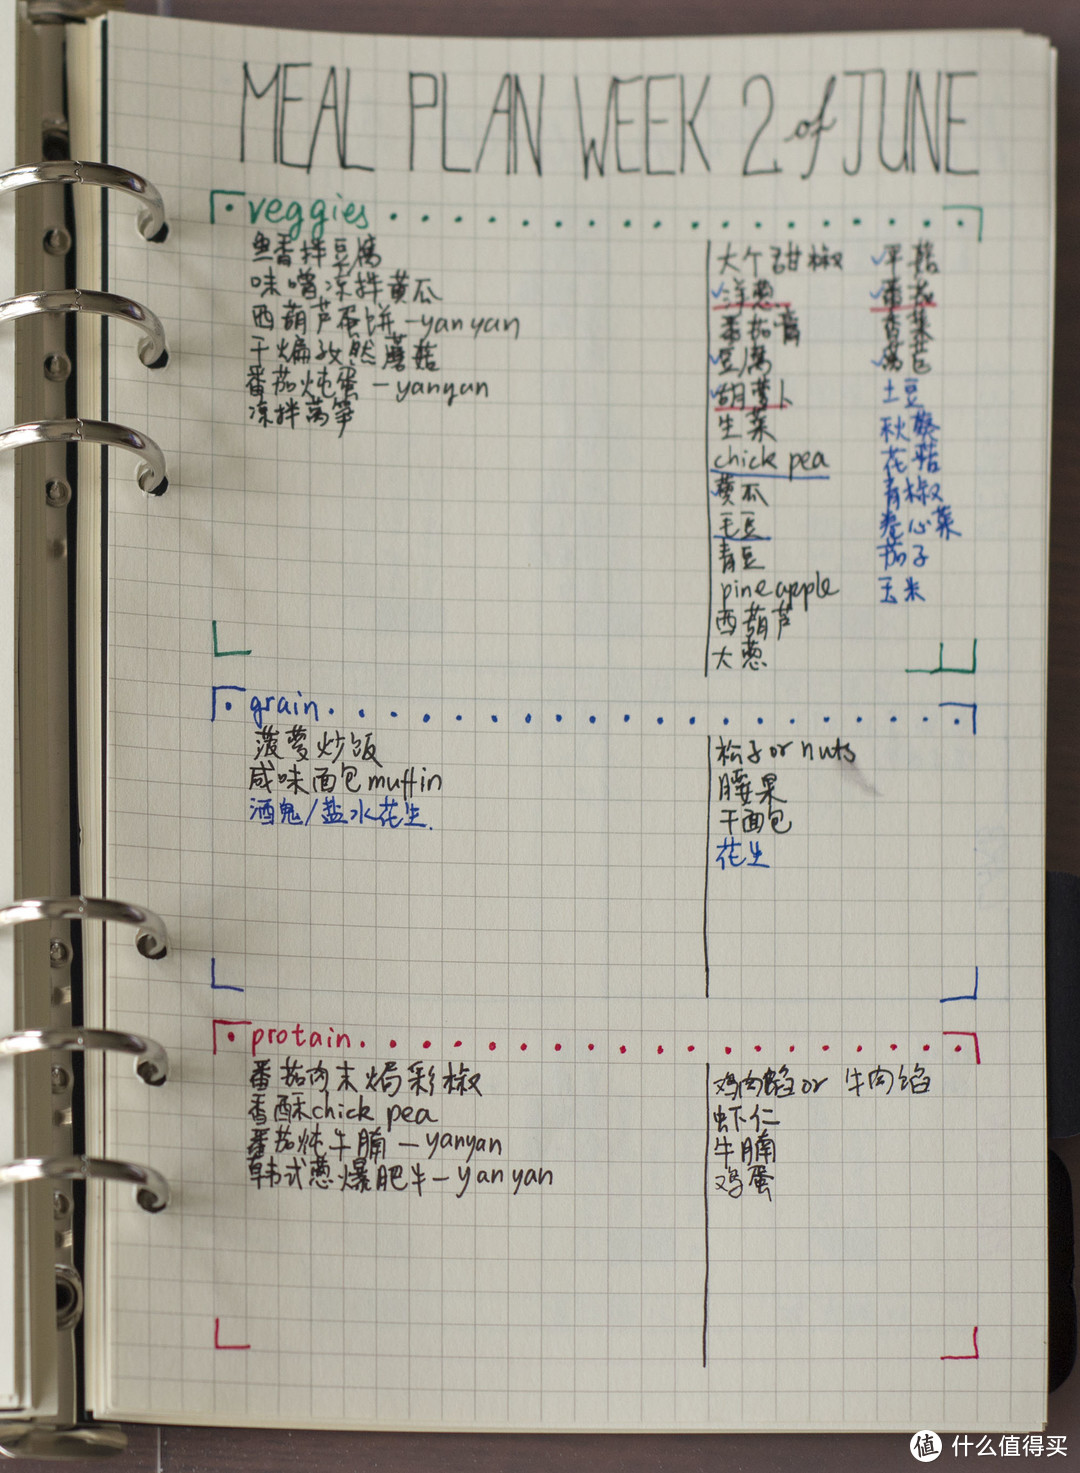 MEAL PLAN WEEK 2 of JUNE
veggies
鱼香拌豆腐
味噌凉拌黄瓜
西葫芦蛋饼 - yanyan
干煸孜然蘑菇
番茄炖蛋 - yanyan
凉拌莴笋
大个甜椒
洋葱
番茄膏
豆腐
胡萝卜
生菜
chick pea
黄瓜
毛豆
青豆
pineapple
西葫芦
大葱
平菇
番茄
香菜
莴苣
土豆
秋葵
花菇
青椒
卷心菜
茄子
玉米
grain
菠萝炒饭
咸味面包muffin
酒鬼/盐水花生.
松子or nuts
腰果
干面包
花生
protain
番茄肉末焗彩椒
香酥chick pea
番茄炖牛腩 - yanyan
韩式葱爆肥牛 - yanyan
鸡肉馅or 牛肉馅
虾仁
牛腩
鸡蛋
值 什么值得买